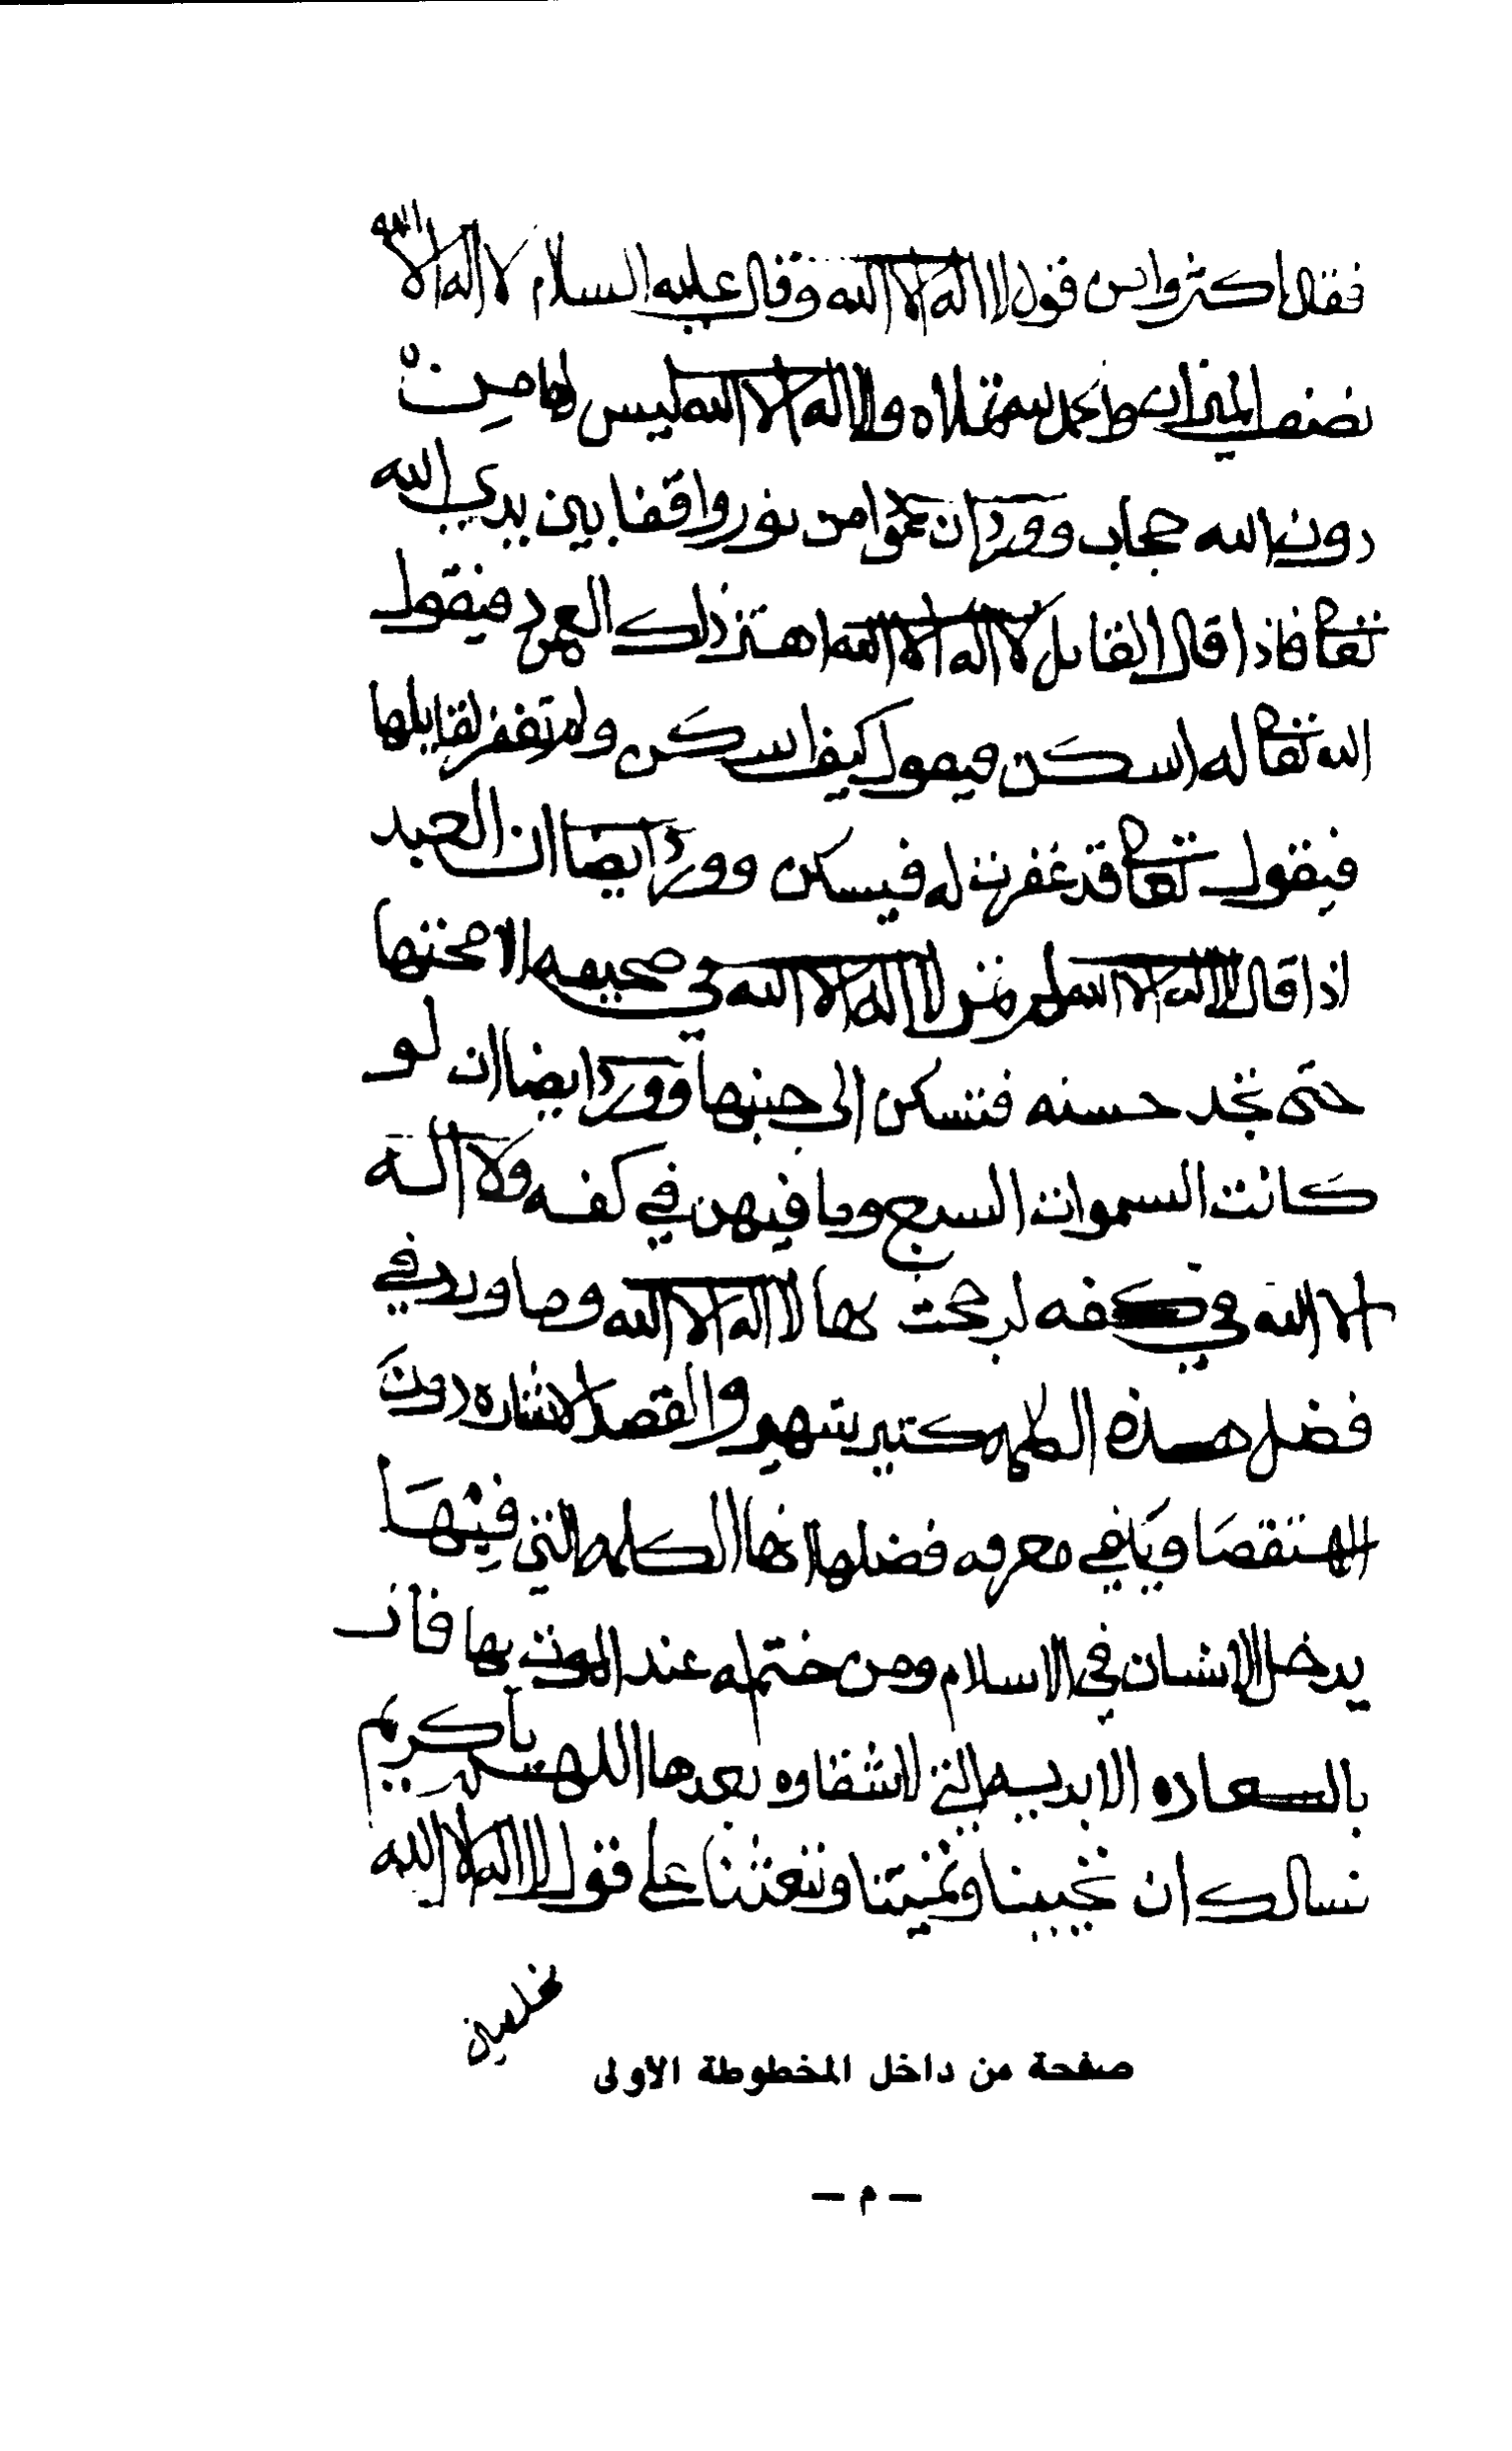 فقال اكثروا من قول لا اله الا الله وقال عليه السلام لا اله الا الله
نصف الميزان والحمد لله تملاه ولا اله الا الله ليس لها من
دون الله حجاب وورد ان عمودا من نور واقفا بين يدي الله
تعالى فاذا قال القايل لا اله الا الله اهتز ذلك العمود فيقول
الله تعالى له اسكن فيقول كيف اسكن ولم تغفر لقايلها
فيقول تعالى قد غفرت له فيسكن وورد ايضا ان العبد
اذا قال لا اله الا الله لم تمر لا اله الا الله في صحيفه الا محتها
حتى تجد حسنه فتسكن الى جنبها وورد ايضا ان لو
كانت السموات السبع وما فيهن في كفه ولا اله
الا الله في كفه لرجحت بها لا اله الا الله وما ورد في
فضل هذه الكلمه كتير شهير والقصد الاشاره دون
الاستقصا ويكفي معرفه فضلها انها الكلمه التي فيها
يدخل الانسان في الاسلام ومن ختم له عند الموت بها فاز
بالسعاده الابديه التي لا شقاوه بعدها اللهم يا كريم
نسالك ان تحيينا وتميتنا وتبعثنا على قول لا اله الا الله
مخلصين
صفحة من داخل المخطوطة الاولى
- م -